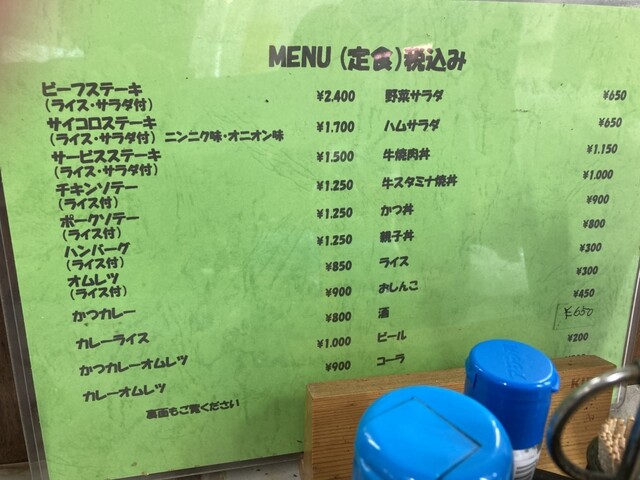 MENU (定食)税込み
ビーフステーキ ¥2.400
(ライス・サラダ付)
サイコロステーキ ¥1.700
(ライス・サラダ付) ニンニク味・オニオン味
サービスステーキ ¥1.500
(ライス・サラダ付)
チキンソテー ¥1.250
(ライス付)
ポークソテー ¥1.250
(ライス付)
ハンバーグ ¥1.250
(ライス付)
オムレツ ¥850
(ライス付)
かつカレー ¥900
カレーライス ¥800
かつカレーオムレツ ¥1.000
カレーオムレツ ¥900
裏面もご覧ください
野菜サラダ ¥650
ハムサラダ ¥650
牛焼肉丼 ¥1.150
牛スタミナ焼丼 ¥1.000
かつ丼 ¥900
親子丼 ¥800
ライス ¥300
おしんこ ¥300
酒 ¥450
ビール ¥650
コーラ ¥200